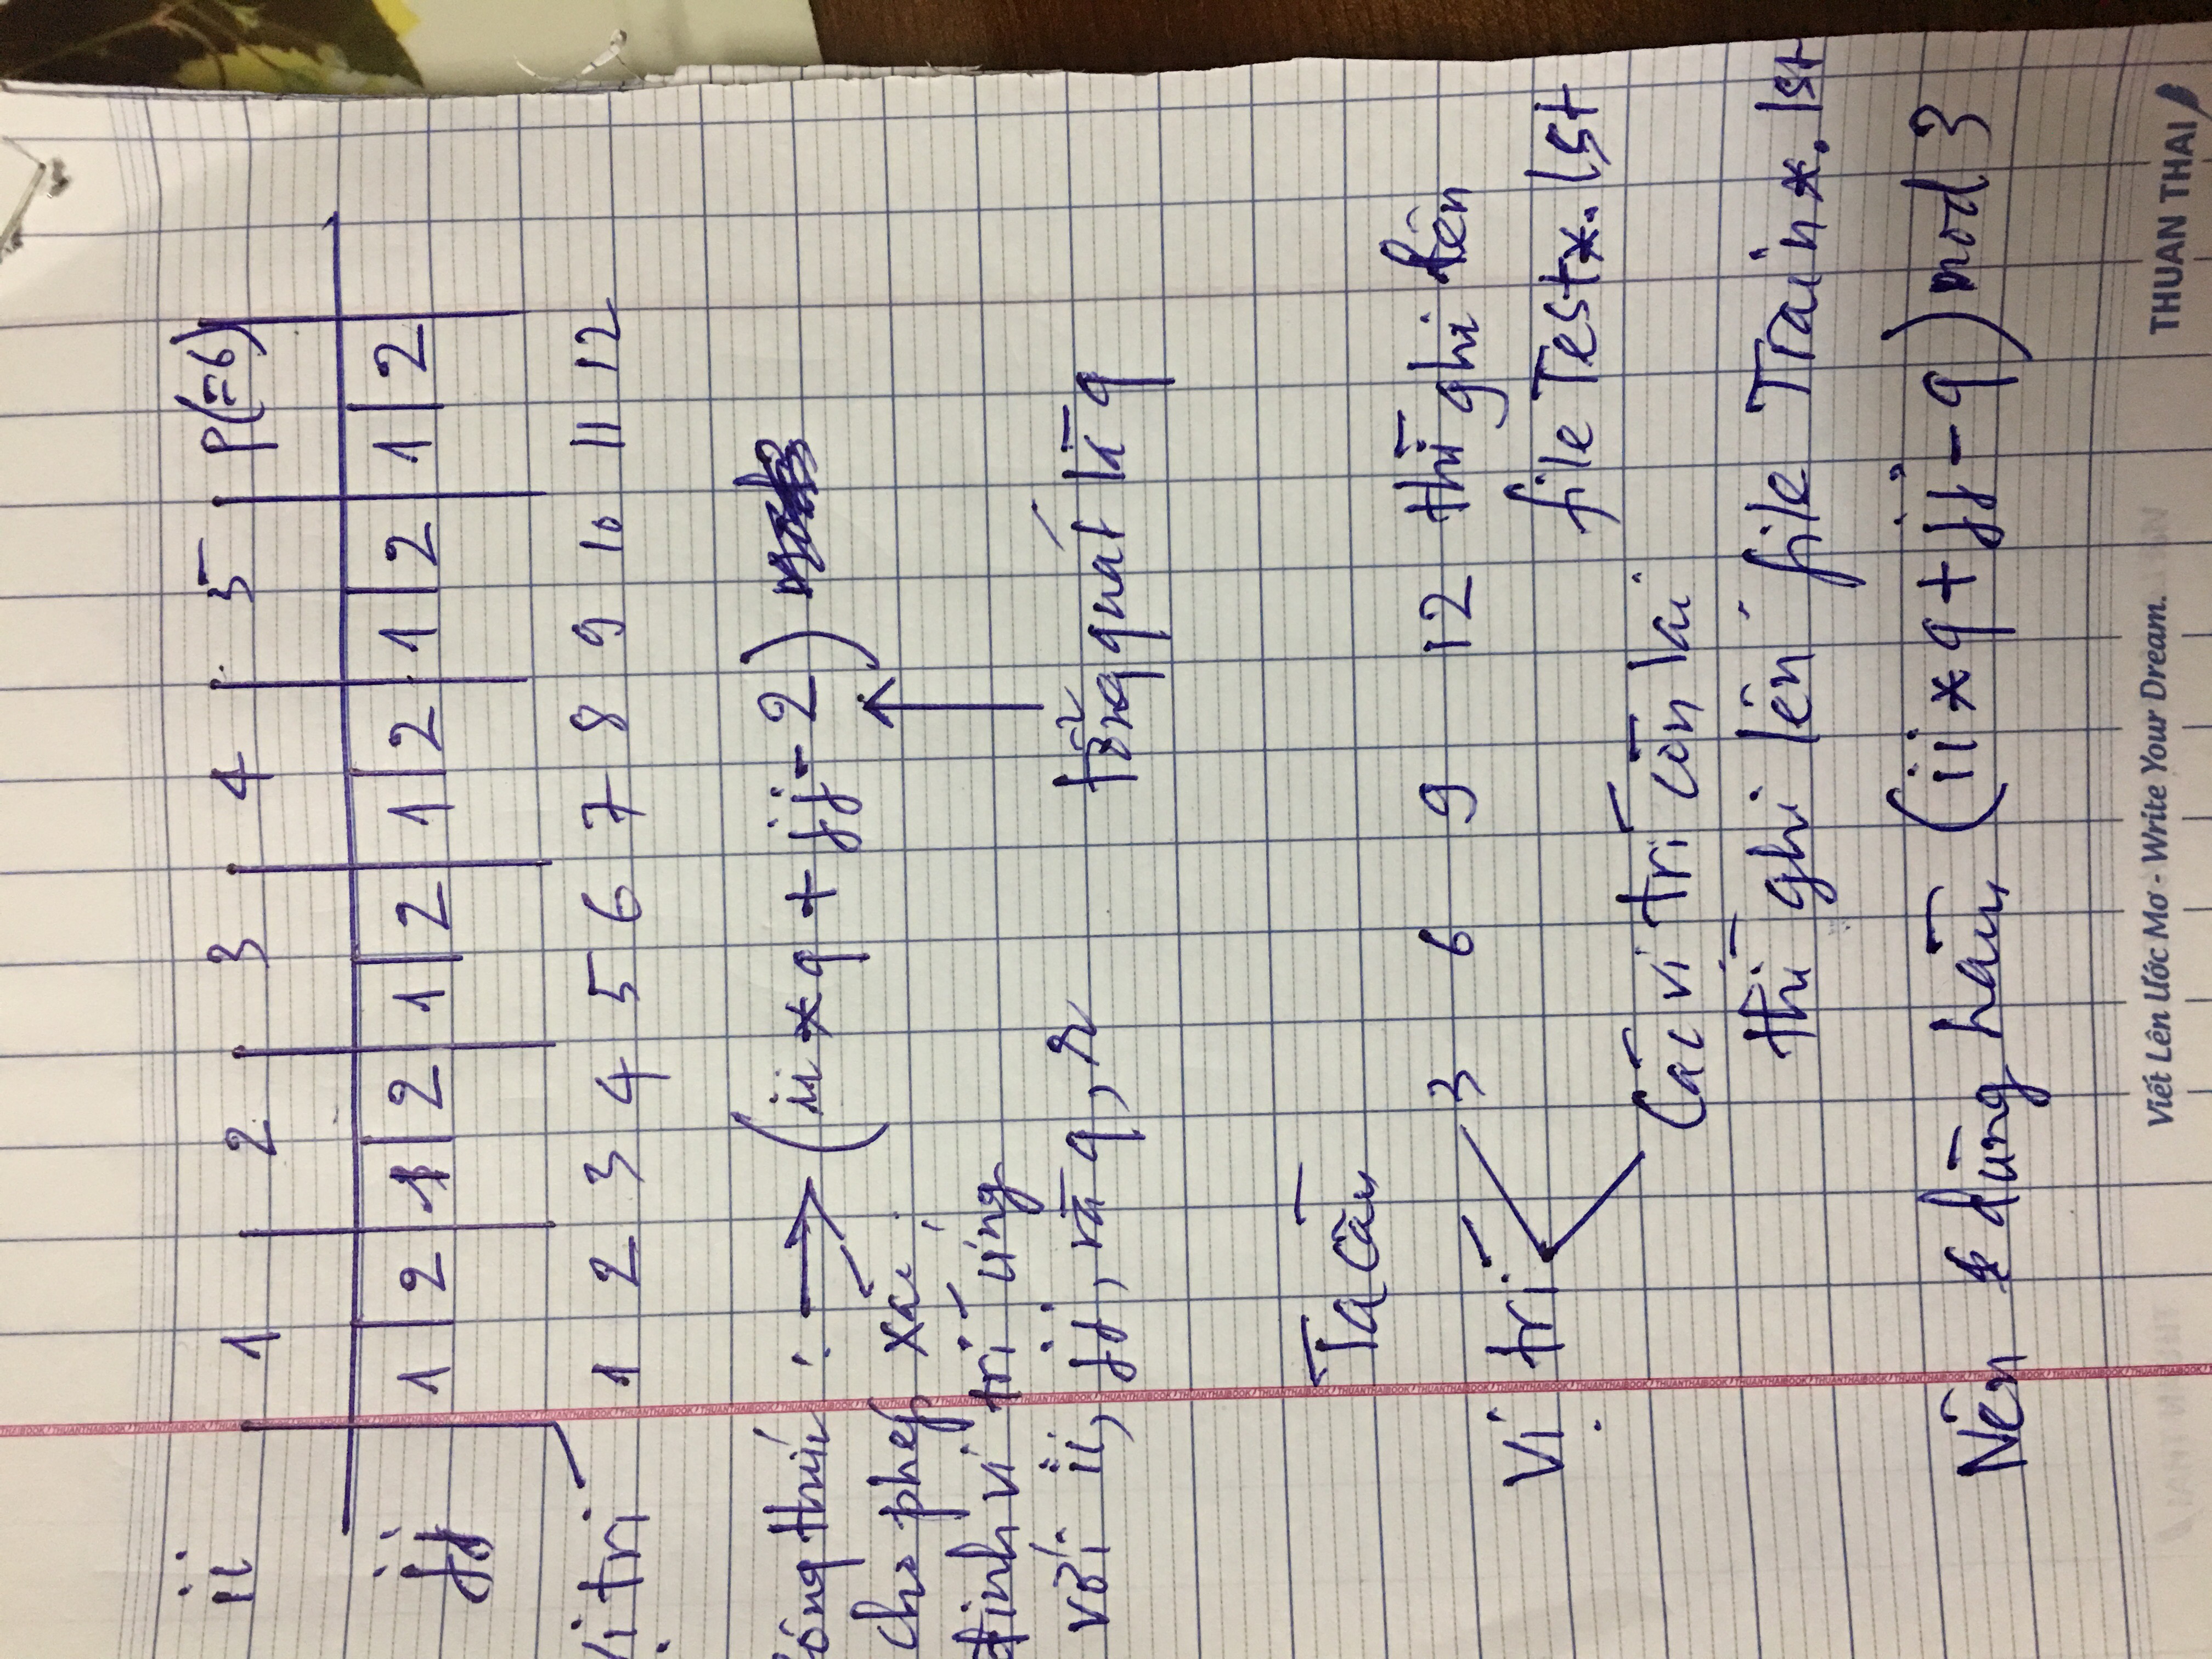 ii 1 2 3 4 5 p(=6)
jj 1 2 1 2 1 2 1 2 1 2 1 2
Vị trí 1 2 3 4 5 6 7 8 9 10 11 12
công thức : → (ii * q + jj - 2)
cho phép xác
định vị trí ứng
với ii, jj, và q, r
tổng quát là q
Ta cần
3 6 9 12 thì ghi lên
Vị trí
file Test*.lst
Các vị trí còn lại
thì ghi lên file Train*.lst
Nên dùng hàm (ii * q + jj - q) mod 3
Viết Lên Ước Mơ - Write Your Dream.
THUAN THAI